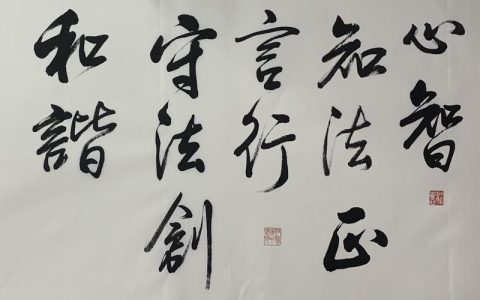 心智
知法正
言行
守法創
和諧